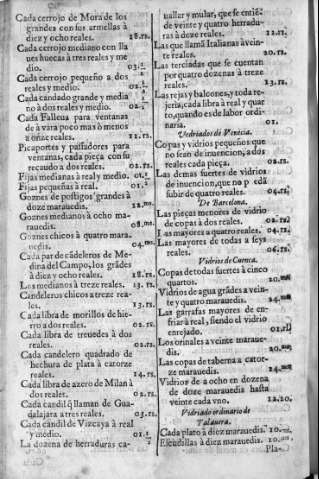 Cada cerrojo de Mora de los
grandes con sus armellas à
diez y ocho reales. 18.rs.
Cada cerrojo mediano con lla
ues huecas à tres reales y me
dio. 03.½
Cada cerrojo pequeño a dos
reales y medio. 02.½
Cada candado grande y media
no à dos reales y medio. 02.½
Cada Falleua para ventanas
de à vara poco mas ò menos
à onze reales. 11.rs.
Picaportes y passadores para
ventanas, cada pieça con su
recaudo a dos reales. 02.rs.
Fijas medianas à real y medio. 01.½
Fijas pequeñas à real. 01.
Goznes de postigos grandes à
doze marauedis. 12.ms.
Goznes medianos à ocho ma-
rauedis. 08.ms.
Goznes chicos à quatro mara
uedis. 04.ms.
Cada par de cãdeleros de Me-
dina del Campo, los grãdes
à diez y ocho reales. 18.rs.
Los medianos à treze reales. 13.rs.
Candeleros chicos a treze rea-
les. 13.rs.
Cada libra de morillos de hie-
rro a dos reales. 02.rs.
Cada libra de treuedes à dos
reales. 02.rs.
Cada candelero quadrado de
hechura de plata à catorze
reales. 14.rs.
Cada libra de azero de Milan à
dos reales. 02.rs.
Cada candil q̃ llaman de Gua-
dalajara a tres reales. 03.rs.
Cada candil de Vizcaya à real
y medio. 01.½
La dozena de herraduras ca-
uallar y mular, que se entiẽ-
de veinte y quatro herradu-
ras à doze reales. 12.rs.
Las que llamã Italianas à vein-
te reales. 20.rs.
Las terciadas que se cuentan
por quatro dozenas à treze
reales. 13.rs.
Las rejas y balcones, y toda re-
jeria, cada libra à real y quar
to, quando es de labor ordi-
naria. 01.
Vedriados de Venecia.
Copas y vidrios pequeños que
no sean de inuencion, a dos
reales cada pieça. 02.rs.
Las demas fuertes de vidrios
de inuencion, que no p edã
subir de quatro reales. 04.rs.
De Barcelona.
Las pieças menores de vidrio
de copas à dos reales. 02.rs.
Las mayores a quatro reales. 04.rs.
Las mayores de todas a seys
reales. 06.rs.
Vidrios de Cuenca.
Copas de todas suertes à cinco
quartos. 20.ms
Vidrios de agua grãdes a vein-
te y quatro marauedis. 24.ms
Las garrafas mayores de en-
friar à real, siendo el vidrio
enrejado. 01.rl
Los orinales a veinte maraue-
dis. 20.ms
Las copas de taberna a cator-
ze marauedis. 14.ms
Vidrios de a ocho en dozena
de doze marauedis hasta
veinte cada vno. 12.20.
Vidriado ordinario de
Talauera.
Cada plato à diez marauedis. 10.ms.
Escudillas à diez marauedis. 10.ms.
Pla-